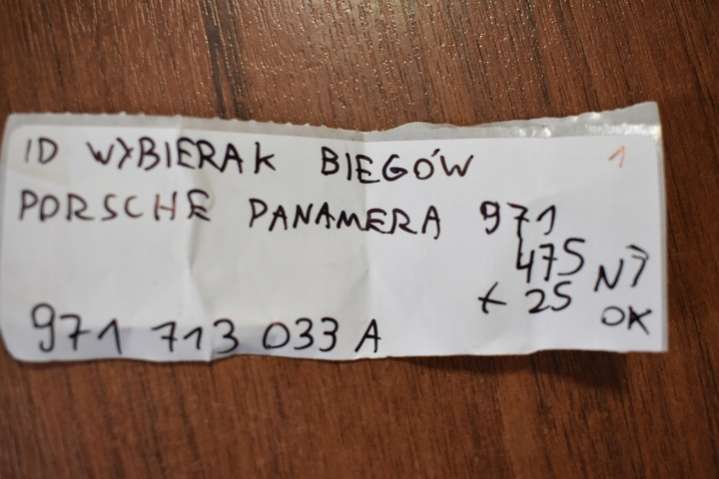 ID WYBIERAK BIEGÓW 1
PORSCHE PANAMERA 971
475
+ 25
OK
971 713 033 A